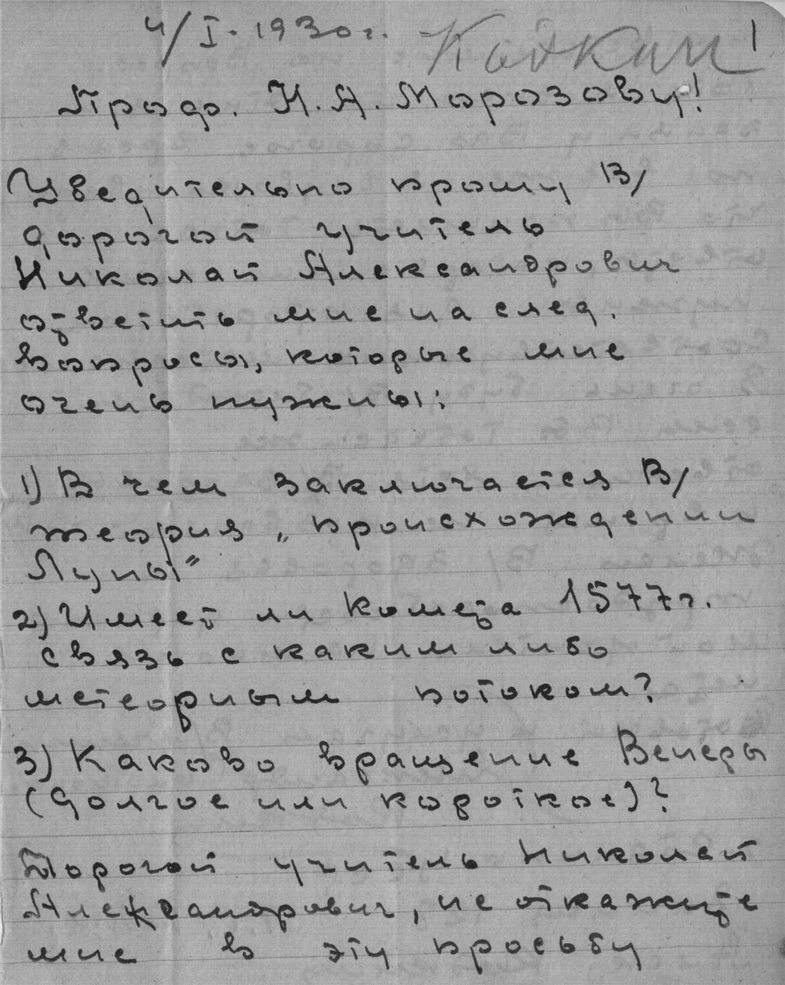 4/I-1930г. Кодкин 1
Проф. Н. А. Морозову!
Убедительно прошу В/
дорогой учитель
Николай Александрович
ответить мне на след.
вопросы, которые мне
очень нужны:
1) В чем заключается В/
теория „происхождении
Луны"
2) Имеет ли комета 1577г.
связь с каким либо
метеорным потоком?
3) Каково вращение Венеры
(долгое или короткое)?
Дорогой учитель Николай
Александрович, не откажите
мне в эту просьбу